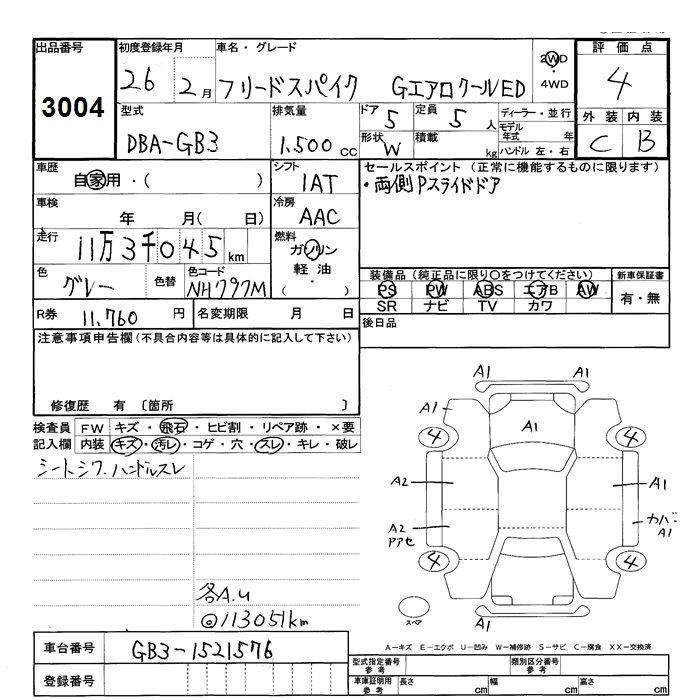 出品番号
3004
初度登録年月
26 2月
車名・グレード
フリードスパイク GエアロクールED
2WD
・
4WD
評価点
4
型式
DBA-GB3
排気量
1.500 cc
ドア
5
定員
5 人
ディーラー・並行
モデル年式 年
ハンドル 左・右
形状
W
積載
kg
外装 内装
C B
車歴
自家用・( )
シフト
IAT
セールスポイント (正常に機能するものに限ります)
・両側Pスライドドア
車検
年 月( 日)
冷房
AAC
走行
11万3千045km
燃料
ガソリン
軽油
・
( )
色
グレー
色替
色コード
NH797M
装備品(純正品に限り○をつけてください)
PS PW ABS エアB AW
SR ナビ TV カワ
新車保証書
有・無
R券 11.760 円
名変期限 月 日
後日品
注意事項申告欄(不具合内容等は具体的に記入して下さい)
修復歴 有 〔箇所 〕
検査員
記入欄
FW キズ・飛石・ヒビ割・リペア跡・×要
内装 キズ・汚レ・コゲ・穴・スレ・キレ・破レ
シートシワ.ハンドルスレ
各A.u
@113051km
A1 A1
A1 A1
4 4
A2 A1
A2
アアセ
カバ
A1
4 4
A1
スペア
A-キズ E-エクボ U-凹み W-補修跡 S-サビ C-腐食 XX-交換済
車台番号
GB3-1521576
登録番号
型式指定番号
参考
類別区分番号
参考
車庫証明用
参考
長さ cm 幅 cm 高さ cm